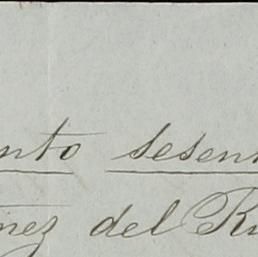 nto sesen
nez del R